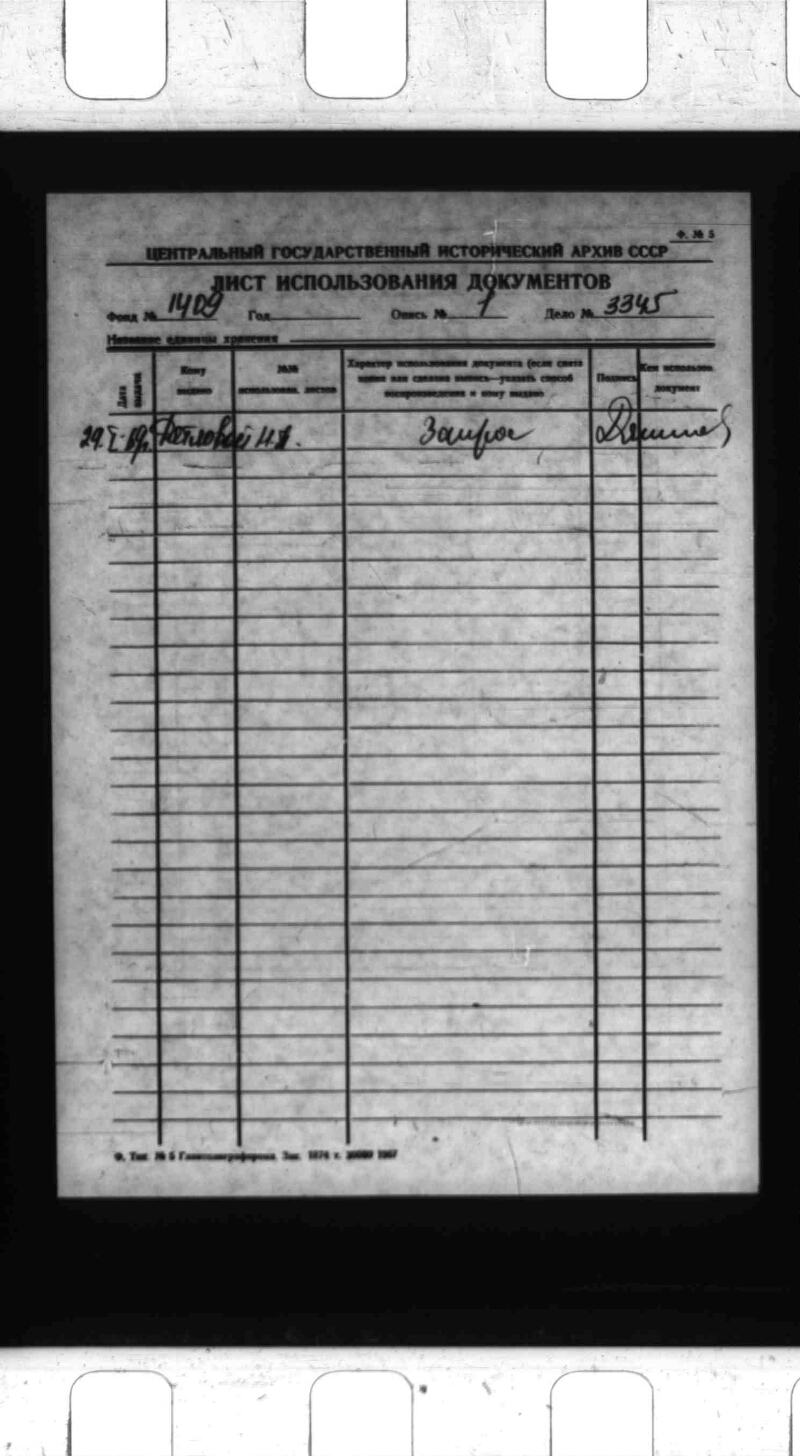 Ф. № 5
ЦЕНТРАЛЬНЫЙ ГОСУДАРСТВЕННЫЙ ИСТОРИЧЕСКИЙ АРХИВ СССР
ЛИСТ ИСПОЛЬЗОВАНИЯ ДОКУМЕНТОВ
Фонд № 1409 Год Опись № 1 Дело № 3345
Название единицы хранения
Дата выдачи
Кому выдано
№№ использован. листов
Характер использования документа (если снята
копия или сделана выпись—указать способ
воспроизведения и кому выдано
Подпись
Кем использов.
документ
29. Запрос
Ф. Тип. № 5 Зак. 1874 т. 1967